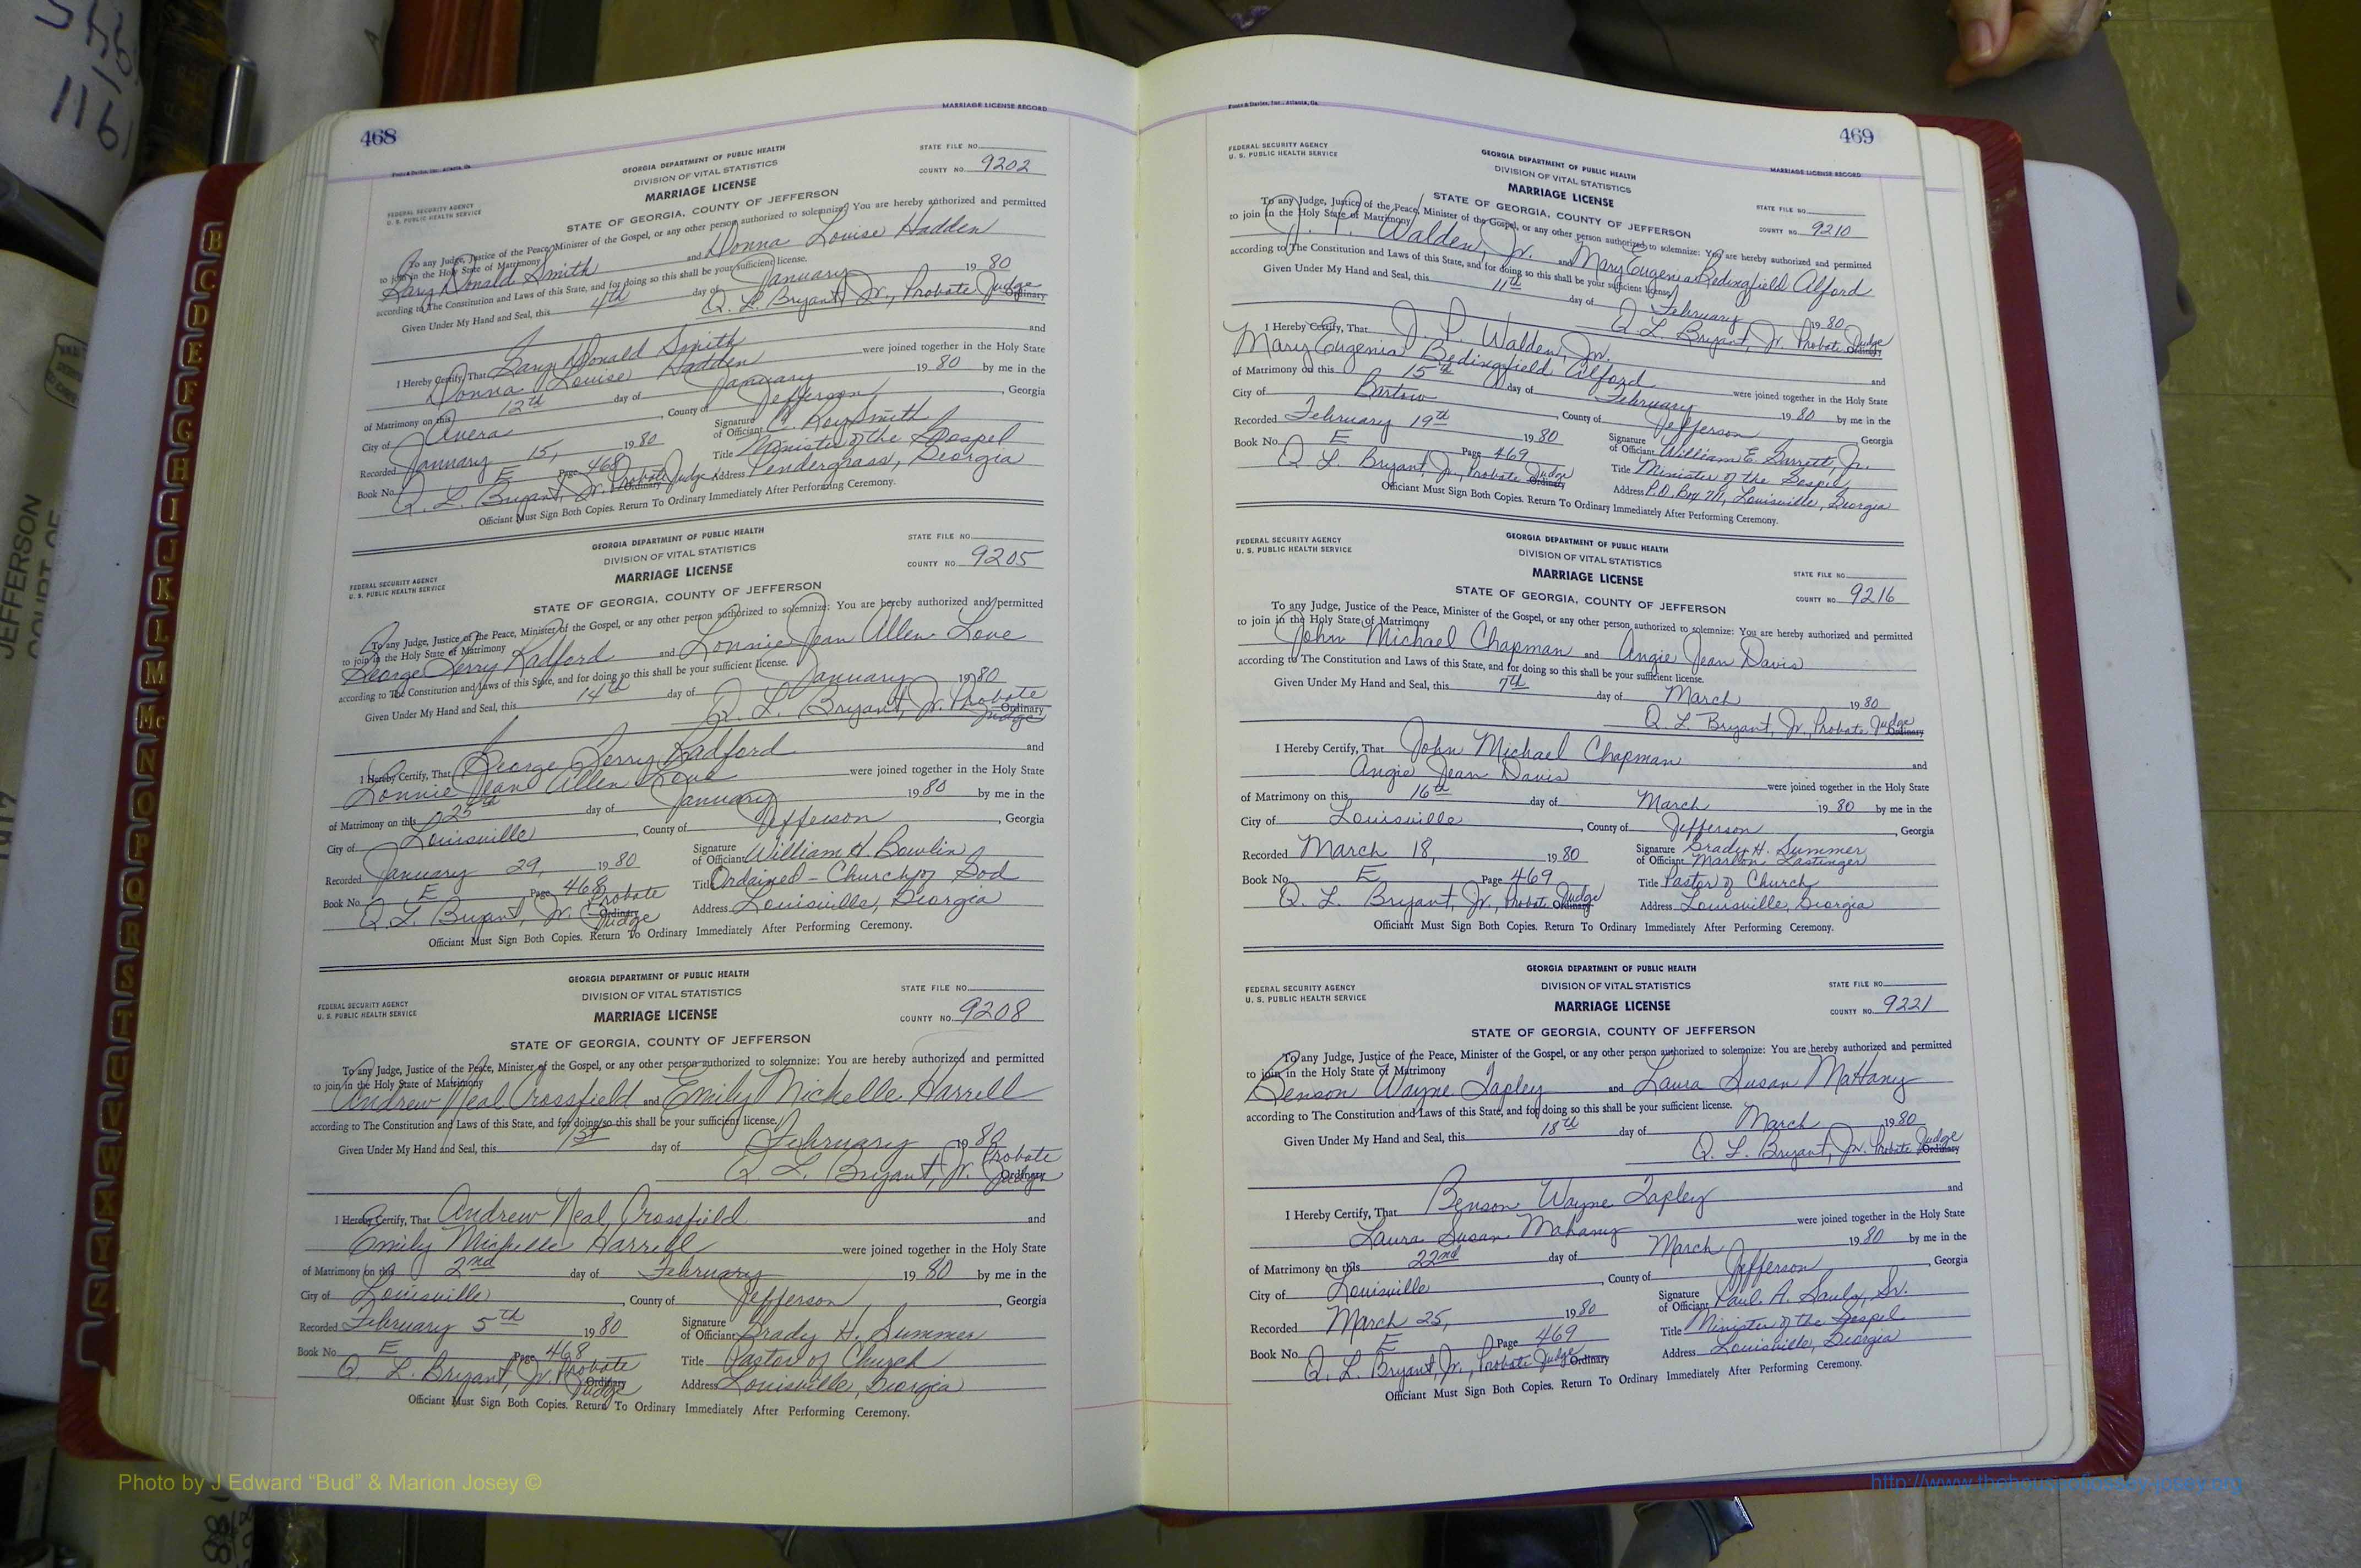 468
MARRIAGE LICENSE RECORD
GEORGIA DEPARTMENT OF PUBLIC HEALTH
DIVISION OF VITAL STATISTICS
MARRIAGE LICENSE
STATE OF GEORGIA, COUNTY OF JEFFERSON
FEDERAL SECURITY AGENCY
U. S. PUBLIC HEALTH SERVICE
STATE FILE NO.
COUNTY NO. 9202
To any Judge, Justice of the Peace, Minister of the Gospel, or any other person authorized to solemnize: You are hereby authorized and permitted
to join in the Holy State of Matrimony
Gary Donald Smith and Donna Louise Hadden
according to The Constitution and Laws of this State, and for doing so this shall be your sufficient license.
Given Under My Hand and Seal, this 4th day of January 1980
Q. L. Bryant, Jr., Probate Judge Ordinary
I Hereby Certify, That Gary Donald Smith and
Donna Louise Hadden were joined together in the Holy State
of Matrimony on this 12th day of January 1980 by me in the
City of Avera, County of Jefferson, Georgia
Recorded January 15, 1980
Signature of Officiant C. Roy Smith
Book No. E Page 468
Title Minister of the Gospel
Q. L. Bryant, Jr. Probate Judge Ordinary
Address Pendergrass, Georgia
Officiant Must Sign Both Copies. Return To Ordinary Immediately After Performing Ceremony.
GEORGIA DEPARTMENT OF PUBLIC HEALTH
DIVISION OF VITAL STATISTICS
MARRIAGE LICENSE
STATE OF GEORGIA, COUNTY OF JEFFERSON
FEDERAL SECURITY AGENCY
U. S. PUBLIC HEALTH SERVICE
STATE FILE NO.
COUNTY NO. 9205
To any Judge, Justice of the Peace, Minister of the Gospel, or any other person authorized to solemnize: You are hereby authorized and permitted
to join in the Holy State of Matrimony
George Terry Radford and Lonnie Jean Allen Love
according to The Constitution and Laws of this State, and for doing so this shall be your sufficient license.
Given Under My Hand and Seal, this 14th day of January 1980
Q. L. Bryant, Jr. Probate Ordinary Judge
I Hereby Certify, That George Terry Radford and
Lonnie Jean Allen Love were joined together in the Holy State
of Matrimony on this 25th day of January 1980 by me in the
City of Louisville, County of Jefferson, Georgia
Recorded January 29, 1980
Signature of Officiant William H. Bowlin
Book No. E Page 468
Title Ordained - Church of God
Q. L. Bryant, Jr. Probate Ordinary Judge
Address Louisville, Georgia
Officiant Must Sign Both Copies. Return To Ordinary Immediately After Performing Ceremony.
GEORGIA DEPARTMENT OF PUBLIC HEALTH
DIVISION OF VITAL STATISTICS
MARRIAGE LICENSE
STATE OF GEORGIA, COUNTY OF JEFFERSON
FEDERAL SECURITY AGENCY
U. S. PUBLIC HEALTH SERVICE
STATE FILE NO.
COUNTY NO. 9208
To any Judge, Justice of the Peace, Minister of the Gospel, or any other person authorized to solemnize: You are hereby authorized and permitted
to join in the Holy State of Matrimony
Andrew Neal Crossfield and Emily Michelle Harrell
according to The Constitution and Laws of this State, and for doing so this shall be your sufficient license.
Given Under My Hand and Seal, this 1st day of February 1980
Q. L. Bryant, Jr. Probate Ordinary Judge
I Hereby Certify, That Andrew Neal Crossfield and
Emily Michelle Harrell were joined together in the Holy State
of Matrimony on this 2nd day of February 1980 by me in the
City of Louisville, County of Jefferson, Georgia
Recorded February 5th 1980
Signature of Officiant Grady H. Summer
Book No. E Page 468
Title Pastor of Church
Q. L. Bryant, Jr. Probate Ordinary Judge
Address Louisville, Georgia
Officiant Must Sign Both Copies. Return To Ordinary Immediately After Performing Ceremony.
469
MARRIAGE LICENSE RECORD
FEDERAL SECURITY AGENCY
U. S. PUBLIC HEALTH SERVICE
GEORGIA DEPARTMENT OF PUBLIC HEALTH
DIVISION OF VITAL STATISTICS
MARRIAGE LICENSE
STATE OF GEORGIA, COUNTY OF JEFFERSON
STATE FILE NO.
COUNTY NO. 9210
To any Judge, Justice of the Peace, Minister of the Gospel, or any other person authorized to solemnize: You are hereby authorized and permitted
to join in the Holy State of Matrimony
J. P. Walden, Jr. and Mary Eugenia Bedingfield Alford
according to The Constitution and Laws of this State, and for doing so this shall be your sufficient license.
Given Under My Hand and Seal, this 11th day of February 1980
Q L. Bryant, Jr. Probate Judge Ordinary
I Hereby Certify, That J. P. Walden, Jr. and
Mary Eugenia Bedingfield Alford were joined together in the Holy State
of Matrimony on this 15th day of February 1980 by me in the
City of Bartow, County of Jefferson, Georgia
Recorded February 19th 1980
Signature of Officiant William E. Garrett, Jr.
Book No. E Page 469
Title Minister of the Gospel
Q L. Bryant, Jr., Probate Judge Ordinary
Address P.O. Box 711, Louisville, Georgia
Officiant Must Sign Both Copies. Return To Ordinary Immediately After Performing Ceremony.
FEDERAL SECURITY AGENCY
U. S. PUBLIC HEALTH SERVICE
GEORGIA DEPARTMENT OF PUBLIC HEALTH
DIVISION OF VITAL STATISTICS
MARRIAGE LICENSE
STATE OF GEORGIA, COUNTY OF JEFFERSON
STATE FILE NO.
COUNTY NO. 9216
To any Judge, Justice of the Peace, Minister of the Gospel, or any other person authorized to solemnize: You are hereby authorized and permitted
to join in the Holy State of Matrimony
John Michael Chapman and Angie Jean Davis
according to The Constitution and Laws of this State, and for doing so this shall be your sufficient license.
Given Under My Hand and Seal, this 7th day of March 1980
Q L. Bryant, Jr., Probate Judge Ordinary
I Hereby Certify, That John Michael Chapman and
Angie Jean Davis were joined together in the Holy State
of Matrimony on this 16th day of March 1980 by me in the
City of Louisville, County of Jefferson, Georgia
Recorded March 18, 1980
Signature of Officiant Grady H. Summer
Marlon Lastinger
Book No. E Page 469
Title Pastor of Church
Q L. Bryant, Jr., Probate Judge Ordinary
Address Louisville, Georgia
Officiant Must Sign Both Copies. Return To Ordinary Immediately After Performing Ceremony.
FEDERAL SECURITY AGENCY
U. S. PUBLIC HEALTH SERVICE
GEORGIA DEPARTMENT OF PUBLIC HEALTH
DIVISION OF VITAL STATISTICS
MARRIAGE LICENSE
STATE OF GEORGIA, COUNTY OF JEFFERSON
STATE FILE NO.
COUNTY NO. 9221
To any Judge, Justice of the Peace, Minister of the Gospel, or any other person authorized to solemnize: You are hereby authorized and permitted
to join in the Holy State of Matrimony
Benson Wayne Tapley and Laura Susan Mahany
according to The Constitution and Laws of this State, and for doing so this shall be your sufficient license.
Given Under My Hand and Seal, this 18th day of March 1980
Q. L. Bryant, Jr. Probate Judge Ordinary
I Hereby Certify, That Benson Wayne Tapley and
Laura Susan Mahany were joined together in the Holy State
of Matrimony on this 22nd day of March 1980 by me in the
City of Louisville, County of Jefferson, Georgia
Recorded March 25, 1980
Signature of Officiant Paul A. Sauls, Sr.
Book No. E Page 469
Title Minister of the Gospel
Q. L. Bryant, Jr., Probate Judge Ordinary
Address Louisville, Georgia
Officiant Must Sign Both Copies. Return To Ordinary Immediately After Performing Ceremony.
B
C
D
E
F
G
H
I
J
K
L
M
Mc
N
O
P
Q
R
S
T
U
V
W
X
Y
Z
JEFFERSON
COURT OF
Photo by J Edward “Bud” & Marion Josey ©